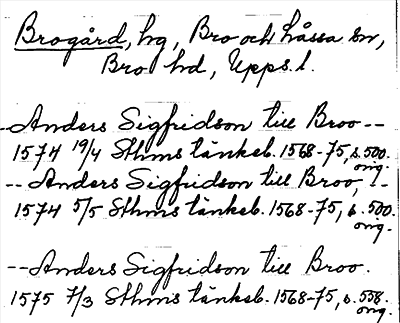 Brogård, hg, Bro och Låssa sn,
Bro hd, Upps. l.
--Anders Sigfridson till Broo--
1574 19/4 Sthms tänkeb. 1568-75, s. 500.
orig.
--Anders Sigfridson till Broo,
1574 5/5 Sthms tänkeb. 1568-75, s. 500.
orig.
--Anders Sigfridson till Broo.
1575 7/3 Sthms tänkeb. 1568-75, s. 558.
orig.